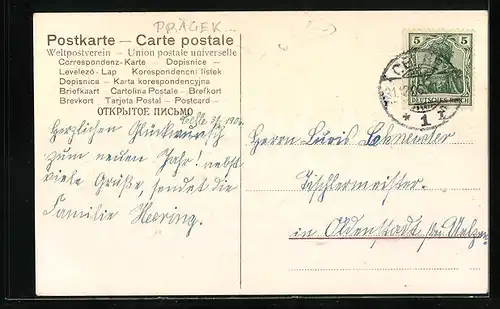 PRÄGEK...
Postkarte — Carte postale
Weltpostverein – Union postale universelle
Correspondenz-Karte – Dopisnice –
Levelező-Lap – Korespondencni listek
Dopisnica – Karta korespondencyjna
Briefkaart – Cartolina Postale – Brefkort
Brevkort – Tarjeta Postal – Postcard –
ОТКРЫТОЕ ПИСЬМО
Celle
Herzlichen Glückwunsch
zum neuen Jahr! nebst
viele Grüße, sendet die
Familie Heering.
5 5
DEUTSCHES REICH
CELLE
* 1 *
Herrn Louis
Tischlermeister.
in Oldenstadt bei Uelzen